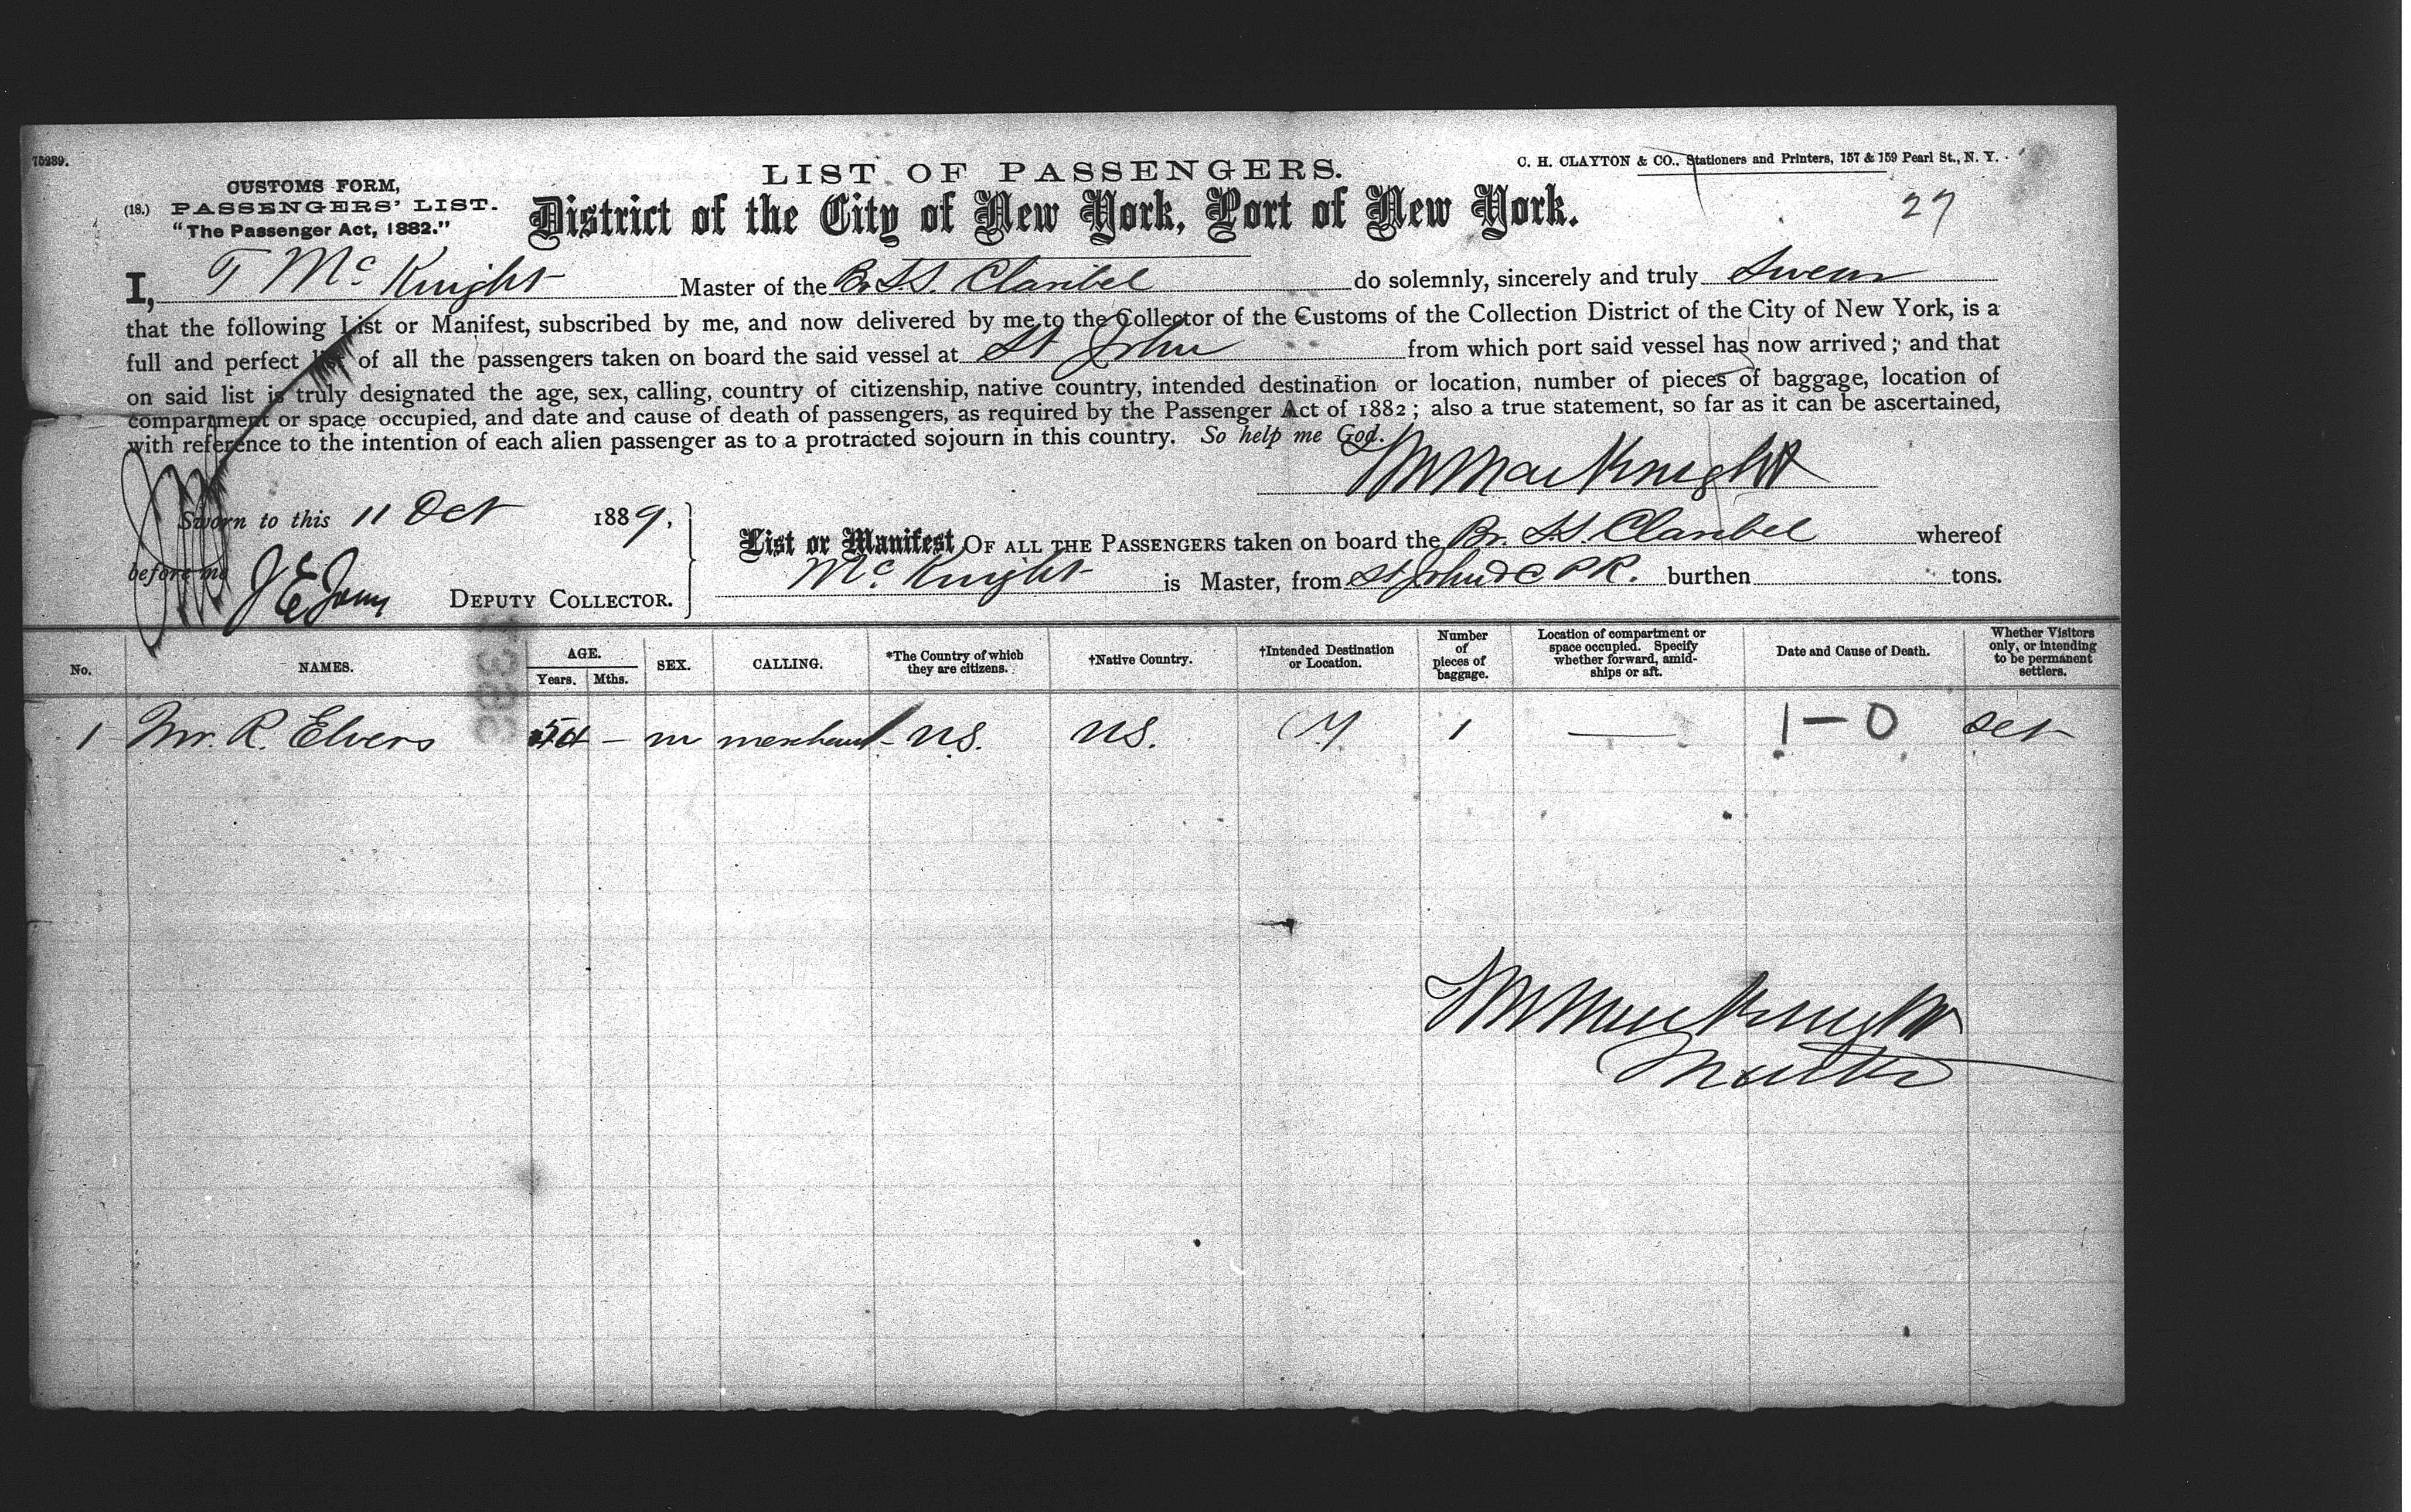 75289.
LIST OF PASSENGERS.
C. H. CLAYTON & CO., Stationers and Printers, 157 & 159 Pearl St., N. Y.
CUSTOMS FORM,
(18.) PASSENGERS' LIST.
"The Passenger Act, 1882."
District of the City of New York, Port of New York.
27
I, T McKnight Master of the Br. S.S. Claribel do solemnly, sincerely and truly Swear
that the following List or Manifest, subscribed by me, and now delivered by me to the Collector of the Customs of the Collection District of the City of New York, is a
full and perfect list of all the passengers taken on board the said vessel at St John from which port said vessel has now arrived; and that
on said list is truly designated the age, sex, calling, country of citizenship, native country, intended destination or location, number of pieces of baggage, location of
compartment or space occupied, and date and cause of death of passengers, as required by the Passenger Act of 1882; also a true statement, so far as it can be ascertained,
with reference to the intention of each alien passenger as to a protracted sojourn in this country. So help me God.
MacKnight
Sworn to this 11 Oct 1889,
before me
DEPUTY COLLECTOR.
List or Manifest OF ALL THE PASSENGERS taken on board the Br. S.S. Claribel whereof
McKnight is Master, from St John &c P R. burthen tons.
No. NAMES. AGE. Years. Mths. SEX. CALLING. *The Country of which they are citizens. †Native Country. †Intended Destination or Location. Number of pieces of baggage. Location of compartment or space occupied. Specify whether forward, amidships or aft. Date and Cause of Death. Whether Visitors only, or intending to be permanent settlers.
1 Mr. R. Elvers 54 – m merchant US. US. 1 — 1–0 set
MacKnight
Master